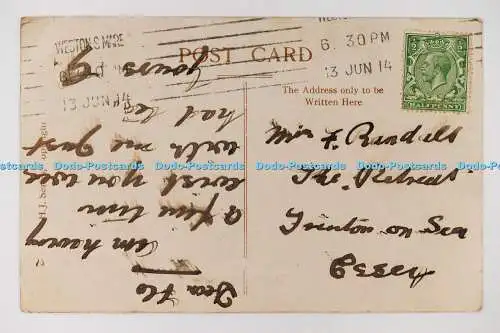 WESTON-S-MARE
13 JUN 14
6. 30 PM
13 JUN 14
HALFPENNY
POST CARD
The Address only to be
Written Here
Miss F. Randall
The Retreat
Frinton on Sea
Essex
Dear Flo
Am having
a fine time
wish you were
with me just
had tea
yours
Dodo-Postcards Dodo-Postcards Dodo-Postcards Dodo-Postcards Dodo-Postcards Dodo-Postcards